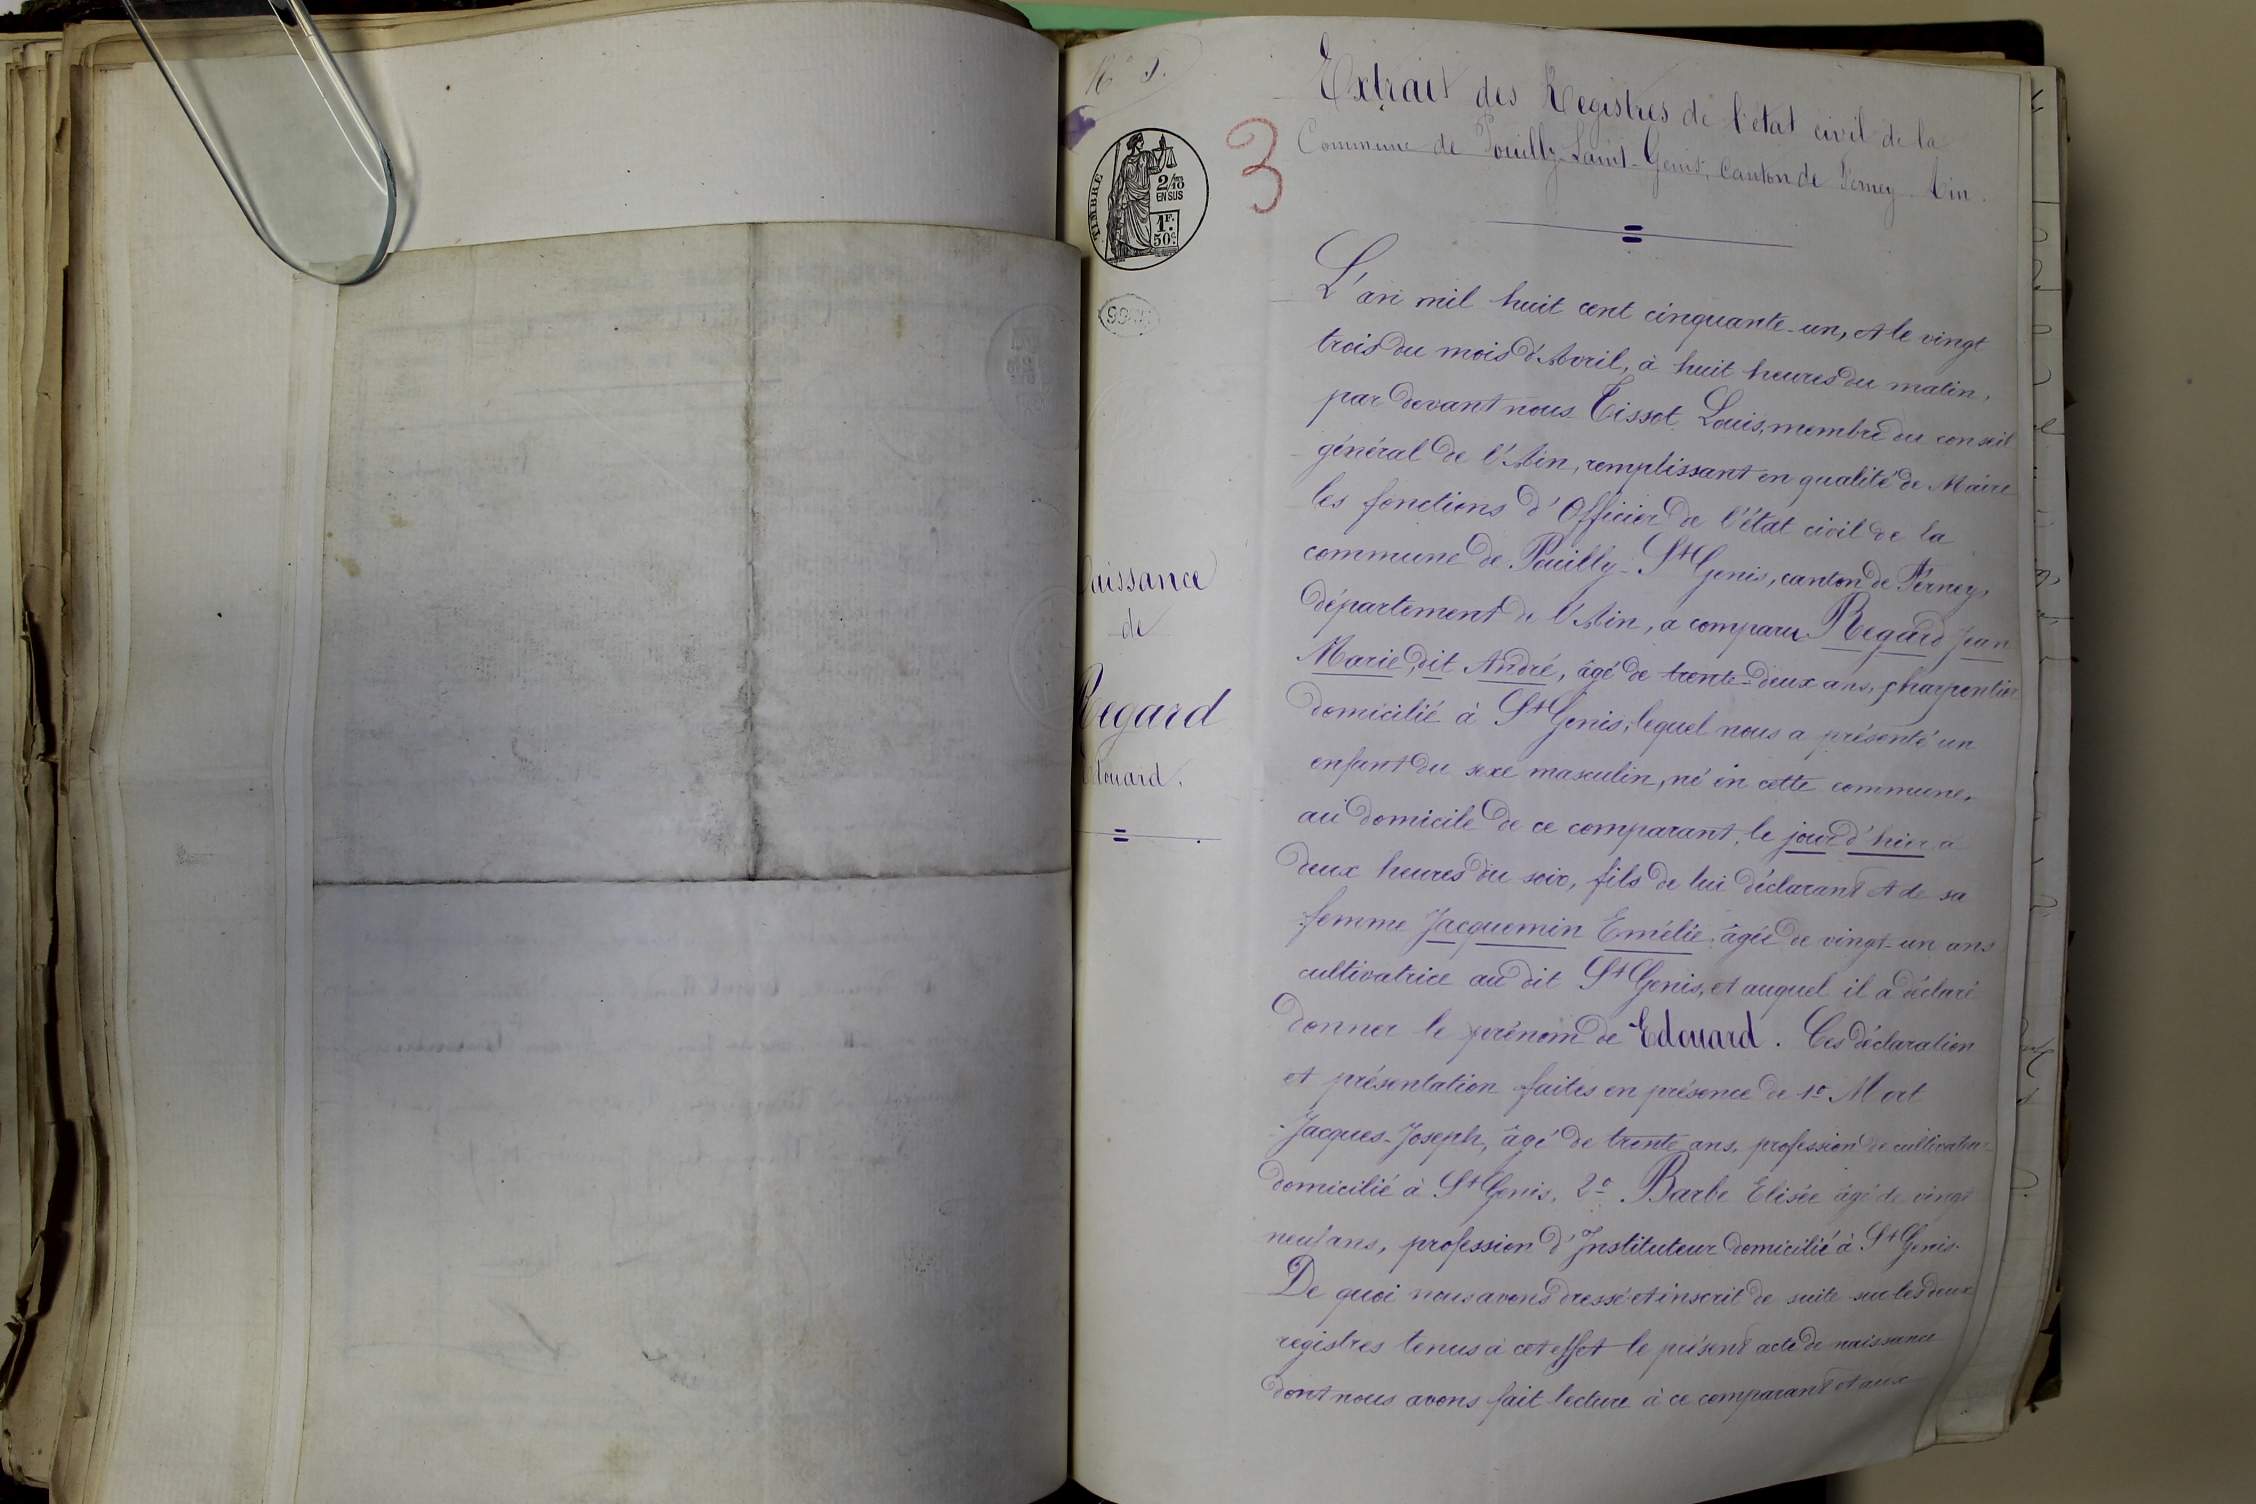 N° 5.
Extrait des Registres de l'état civil de la
Commune de Pouilly-Saint-Genis, Canton de Ferney Ain.
3
TIMBRE
2/10
EN SUS
1F.
50c
L'an mil huit cent cinquante-un, et le vingt
trois du mois d'Avril, à huit heures du matin,
par devant nous Tissot Louis, membre du conseil
général de l'Ain, remplissant en qualité de Maire
les fonctions d'Officier de l'état civil de la
commune de Pouilly-St Genis, canton de Ferney,
département de l'Ain, a comparu Regard Jean
Marie, dit André, âgé de trente-deux ans, charpentier
domicilié à St Genis, lequel nous a présenté un
enfant du sexe masculin, né en cette commune,
au domicile de ce comparant, le jour d'hier à
deux heures du soir, fils de lui déclarant et de sa
femme Jacquemin Emélie, âgée de vingt-un ans
cultivatrice au dit St Genis, et auquel il a déclaré
donner le prénom de Edouard. Ces déclaration
et présentation faites en présence de 1° Mort
Jacques-Joseph, âgé de trente ans, profession de cultivateur
domicilié à St Genis, 2° Barbe Elisée âgé de vingt
neuf ans, profession d'Instituteur domicilié à St Genis.
De quoi nous avons dressé et inscrit de suite sur les deux
registres tenus à cet effet le présent acte de naissance
dont nous avons fait lecture à ce comparant et aux
aissance
de
Regard
douard.